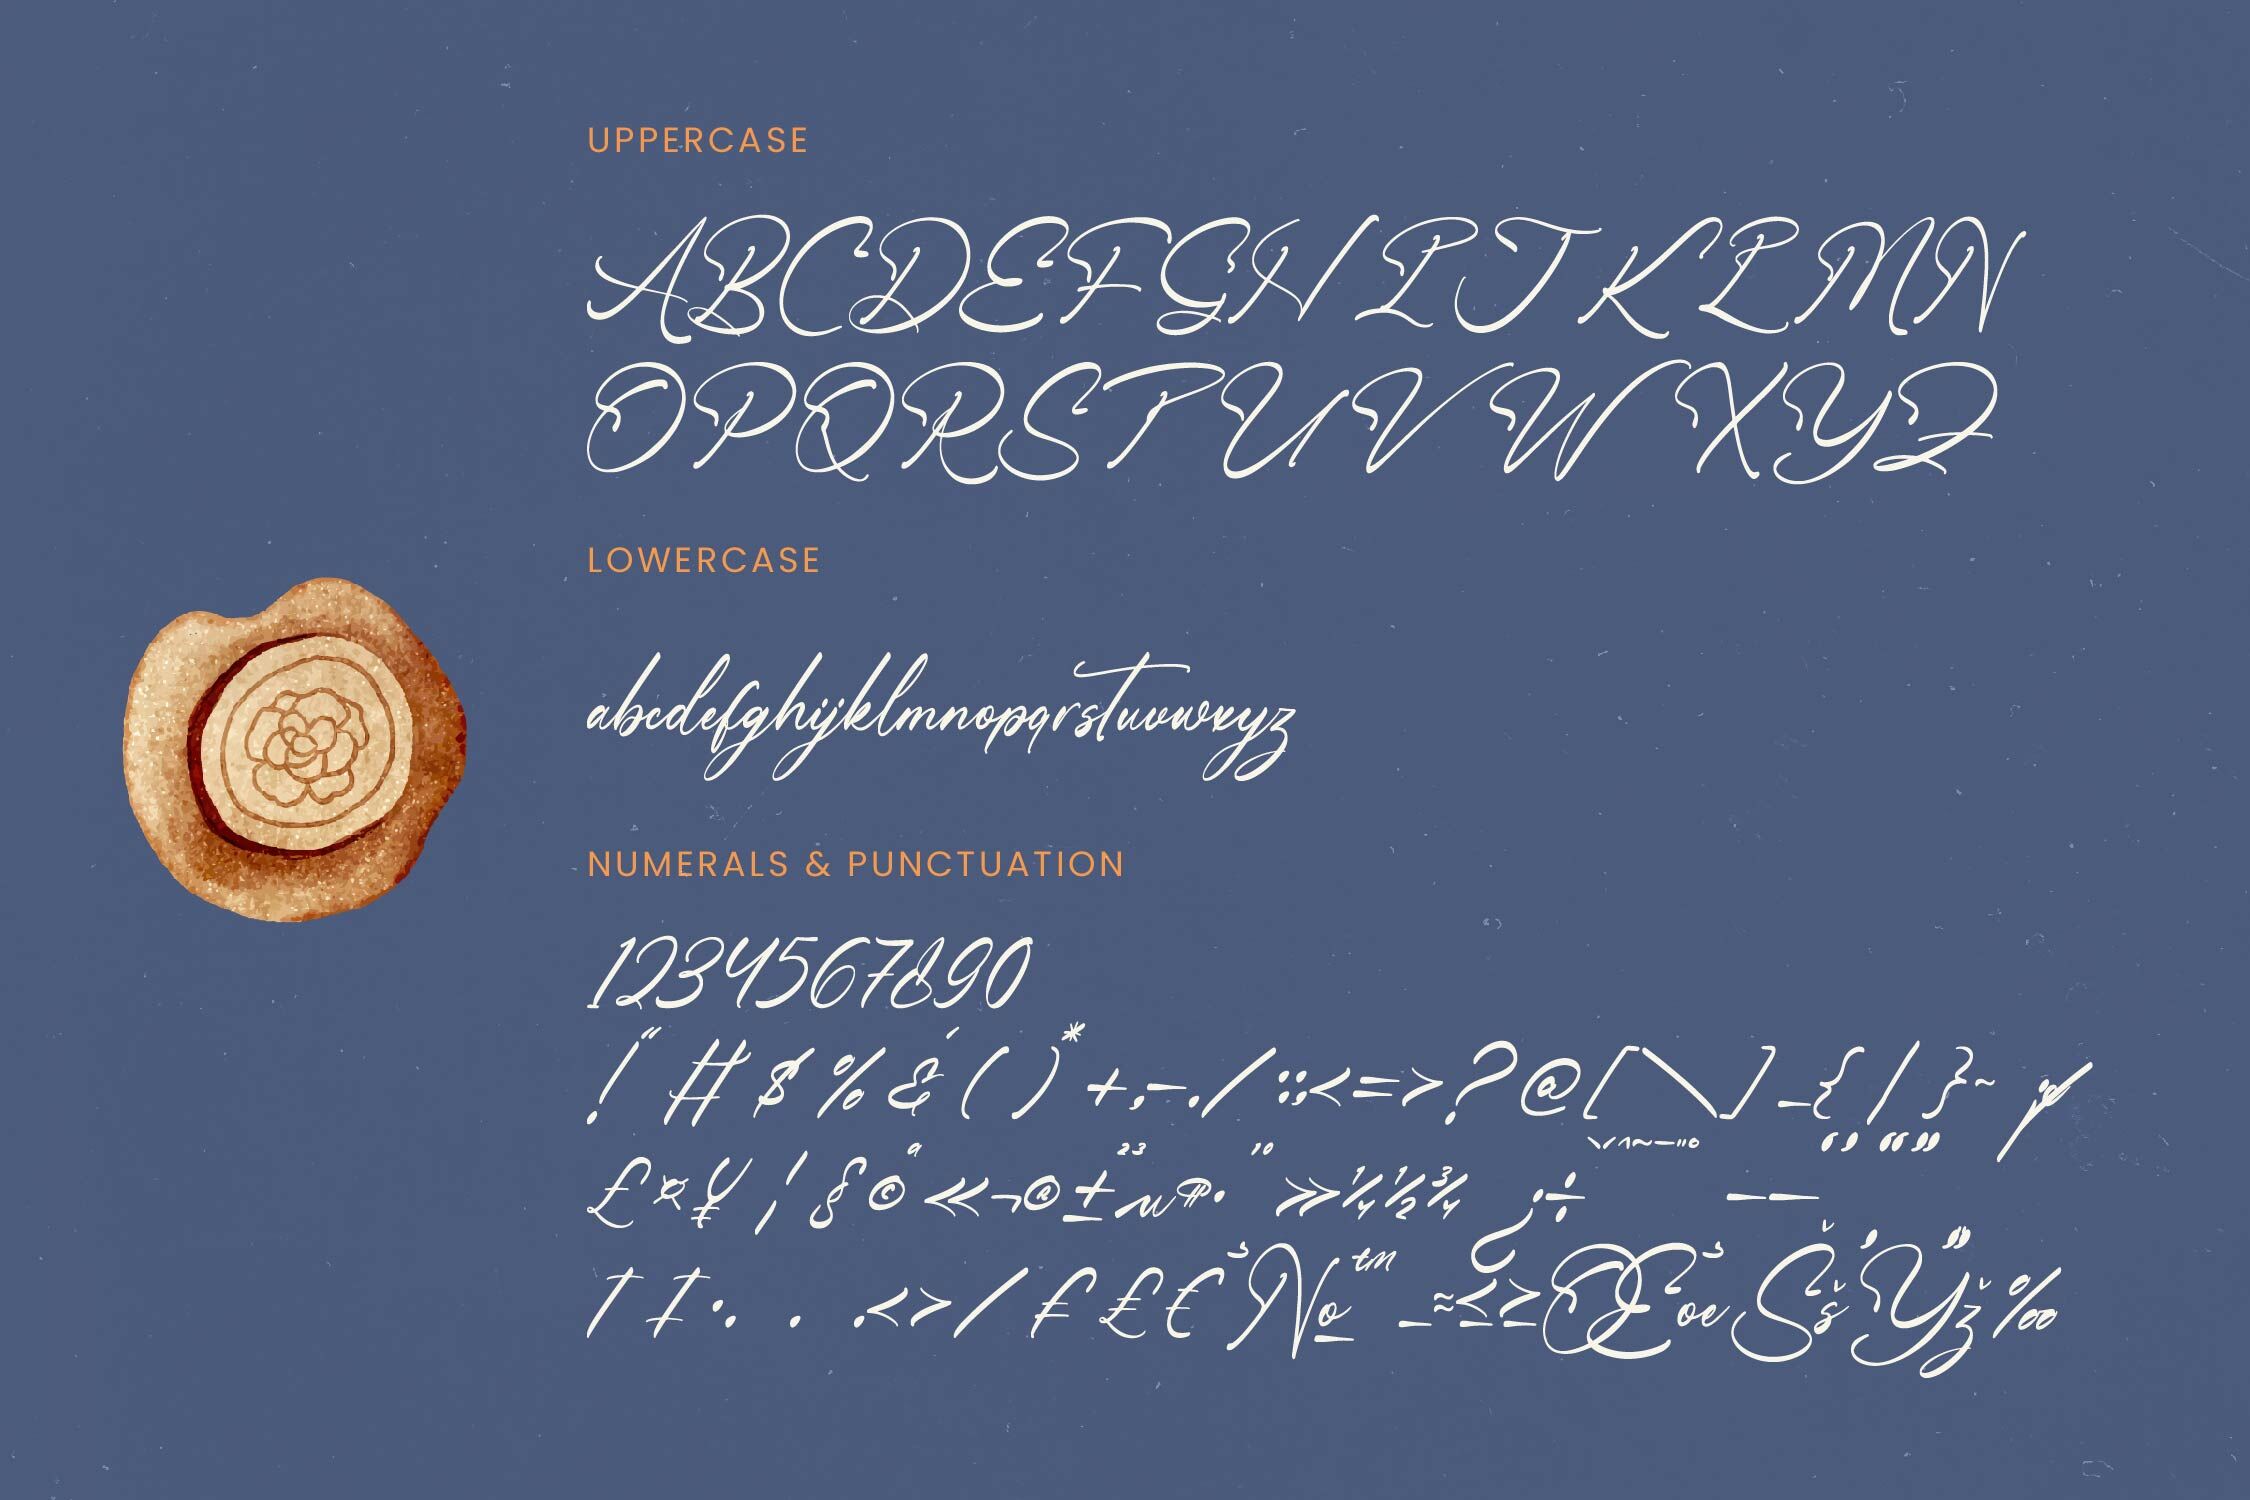 UPPERCASE
ABCDEFGHIJKLMN
OPQRSTUVWXYZ
LOWERCASE
abcdefghijklmnopqrstuvwxyz
NUMERALS & PUNCTUATION
1234567890
!" # $ % & ' ( ) * + , - . / : ; < = > ? @ [ \ ] _ { | } ~ ¢
£ ¤ ¥ ¦ § © ª « ¬ ® ± ² ³ µ ¶ · ¹ º » ¼ ½ ¾ ¿ ÷ – — ‘ ’ “ ”
† ‡ • . . . ‹ › ⁄ ₣ ₤ € № ™ _ ≈ ≤ ≥ Œ œ Š š Ÿ ž ‰